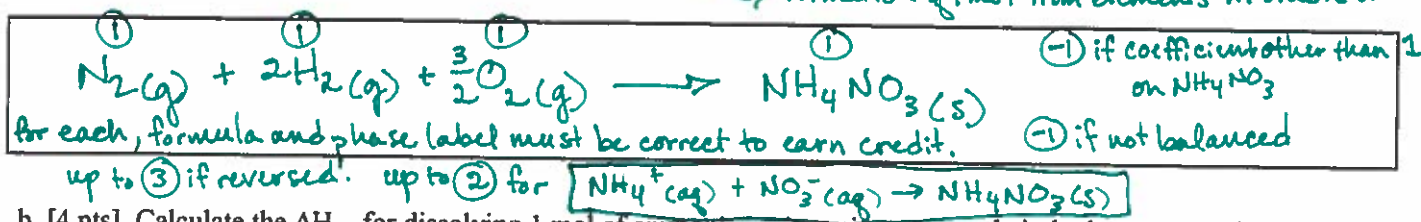 formula 1 of must from elements in
① ① ① ①
N₂(g) + 2H₂(g) + 3/2 O₂(g) ⟶ NH₄NO₃(s)
⊖1 if coefficient other than 1 on NH₄NO₃
for each, formula and phase label must be correct to earn credit.
⊖1 if not balanced
up to ③ if reversed! up to ② for NH₄⁺(aq) + NO₃⁻(aq) → NH₄NO₃(s)
b. [4 pts] Calculate the ΔH for dissolving 1 mol of